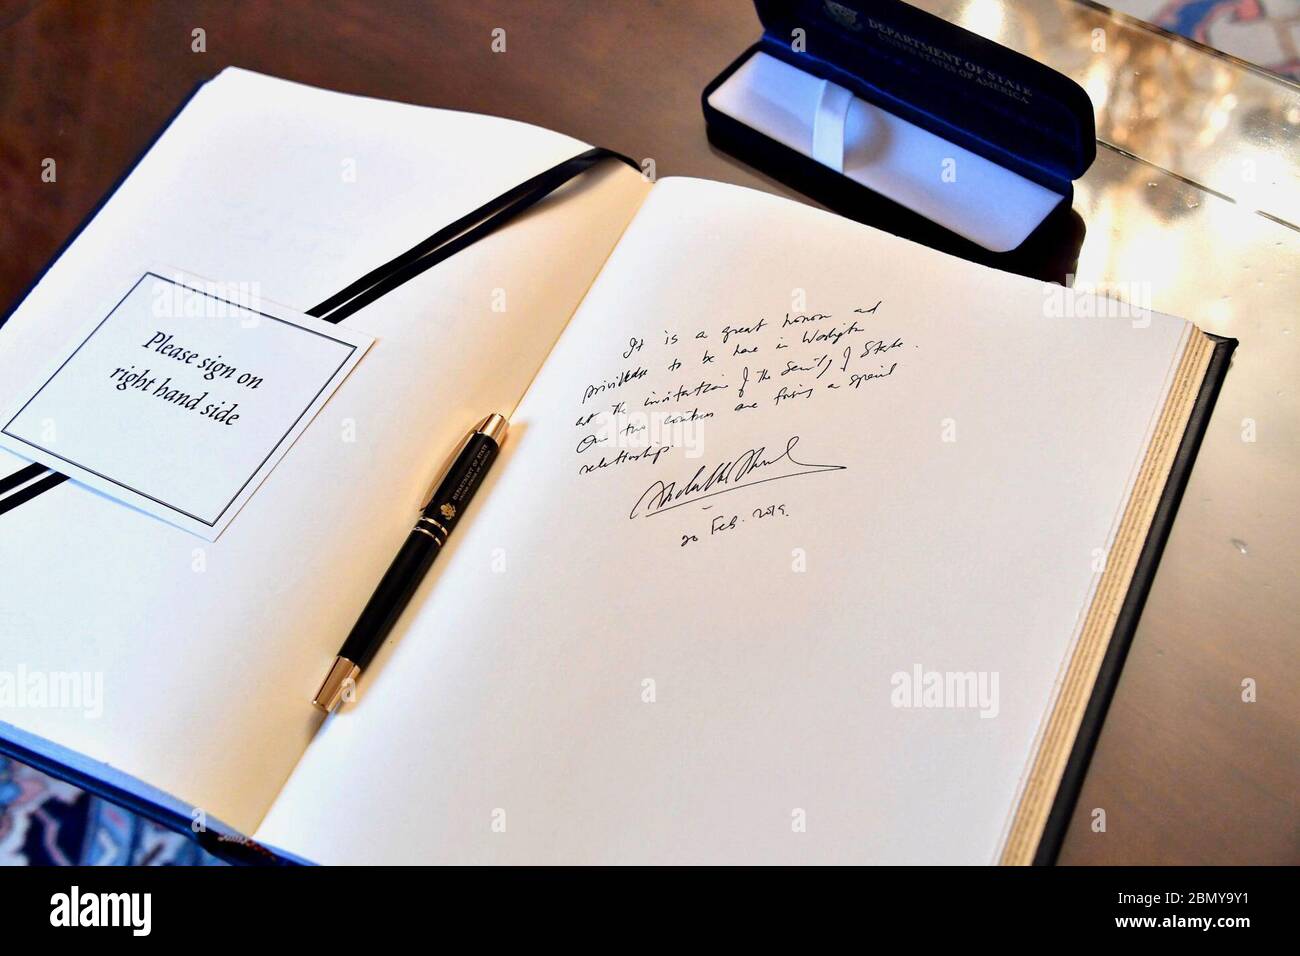 DEPARTMENT OF STATE
UNITED STATES OF AMERICA
Please sign on
right hand side
DEPARTMENT OF STATE
UNITED STATES OF AMERICA
It is a great honor and
privilege to be here in Washington
at the invitation of the Secretary of State.
Our two countries are forging a special
relationship.
20 Feb. 2019.
alamy
Image ID: 2BMY9Y1
www.alamy.com